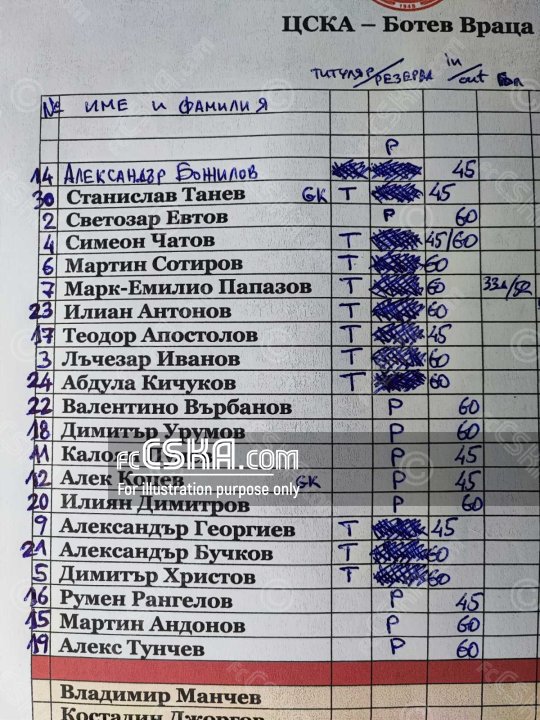 ЦСКА – Ботев Враца
ТИТУЛЯР/РЕЗЕРВА in/out
№ ИМЕ И ФАМИЛИЯ
Р
14 АЛЕКСАНДЪР БОЖИЛОВ 45
30 Станислав Танев GK Т 45
2 Светозар Евтов Р 60
4 Симеон Чатов Т 45/60
6 Мартин Сотиров Т 60
7 Марк-Емилио Папазов Т 60
23 Илиан Антонов Т 60
17 Теодор Апостолов Т 45
3 Лъчезар Иванов Т 60
24 Абдула Кичуков Т 60
22 Валентино Върбанов Р 60
18 Димитър Урумов Р 60
11 Калоян Р 45
fcCSKA.com
12 Алек Коцев GK Р 45
For illustration purpose only
20 Илиян Димитров Р 60
9 Александър Георгиев Т 45
21 Александър Бучков Т 60
5 Димитър Христов Т 60
16 Румен Рангелов Р 45
15 Мартин Андонов Р 60
19 Алекс Тунчев Р 60
Владимир Манчев
Костадин Джоргов